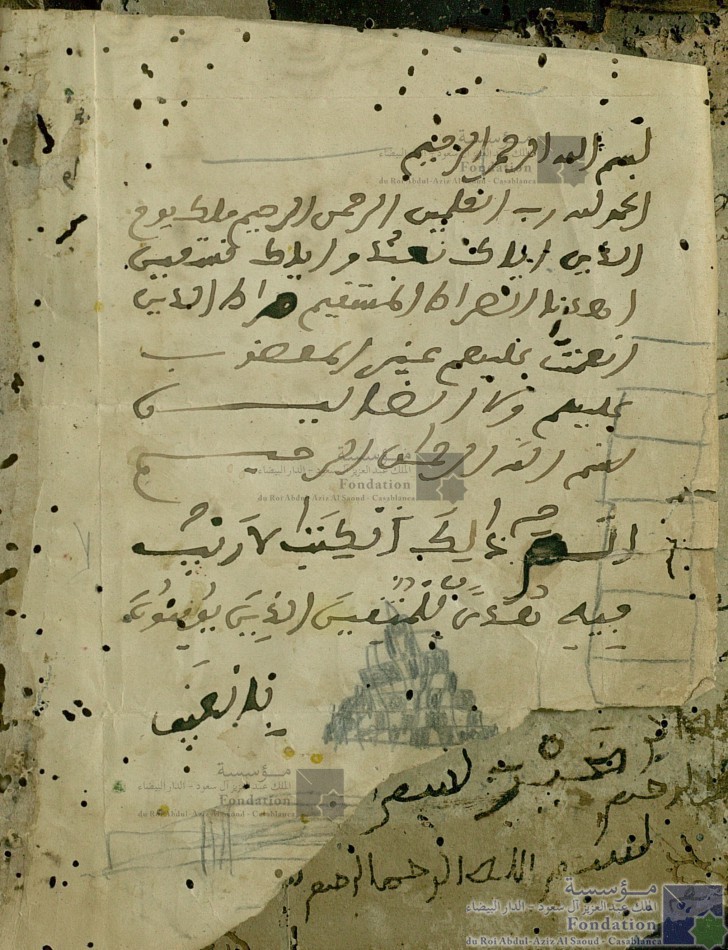 بسم الله الرحمن الرحيم
الحمد لله رب العلمين الرحمن الرحيم ملك يوم
الدين اياك نعبد و اياك نستعين
اهدنا الصراط المستقيم صراط الذين
انعمت عليهم غير المغضوب
عليهم ولا الضالين
بسم الله الرحمن الرحيم
الم ذَالِكَ اَلْكِتَبُ لَا رَيْبَ
فِيهِ هُدًى لِّلْمُتَّقِينَ الذِينَ يُومِنُونَ
بِالْغَيْبِ
الرحيم
بسم الله الرحمن الرحيم
مؤسسة
الملك عبد العزيز آل سعود - الدار البيضاء
Fondation
du Roi Abdul-Aziz Al Saoud - Casablanca